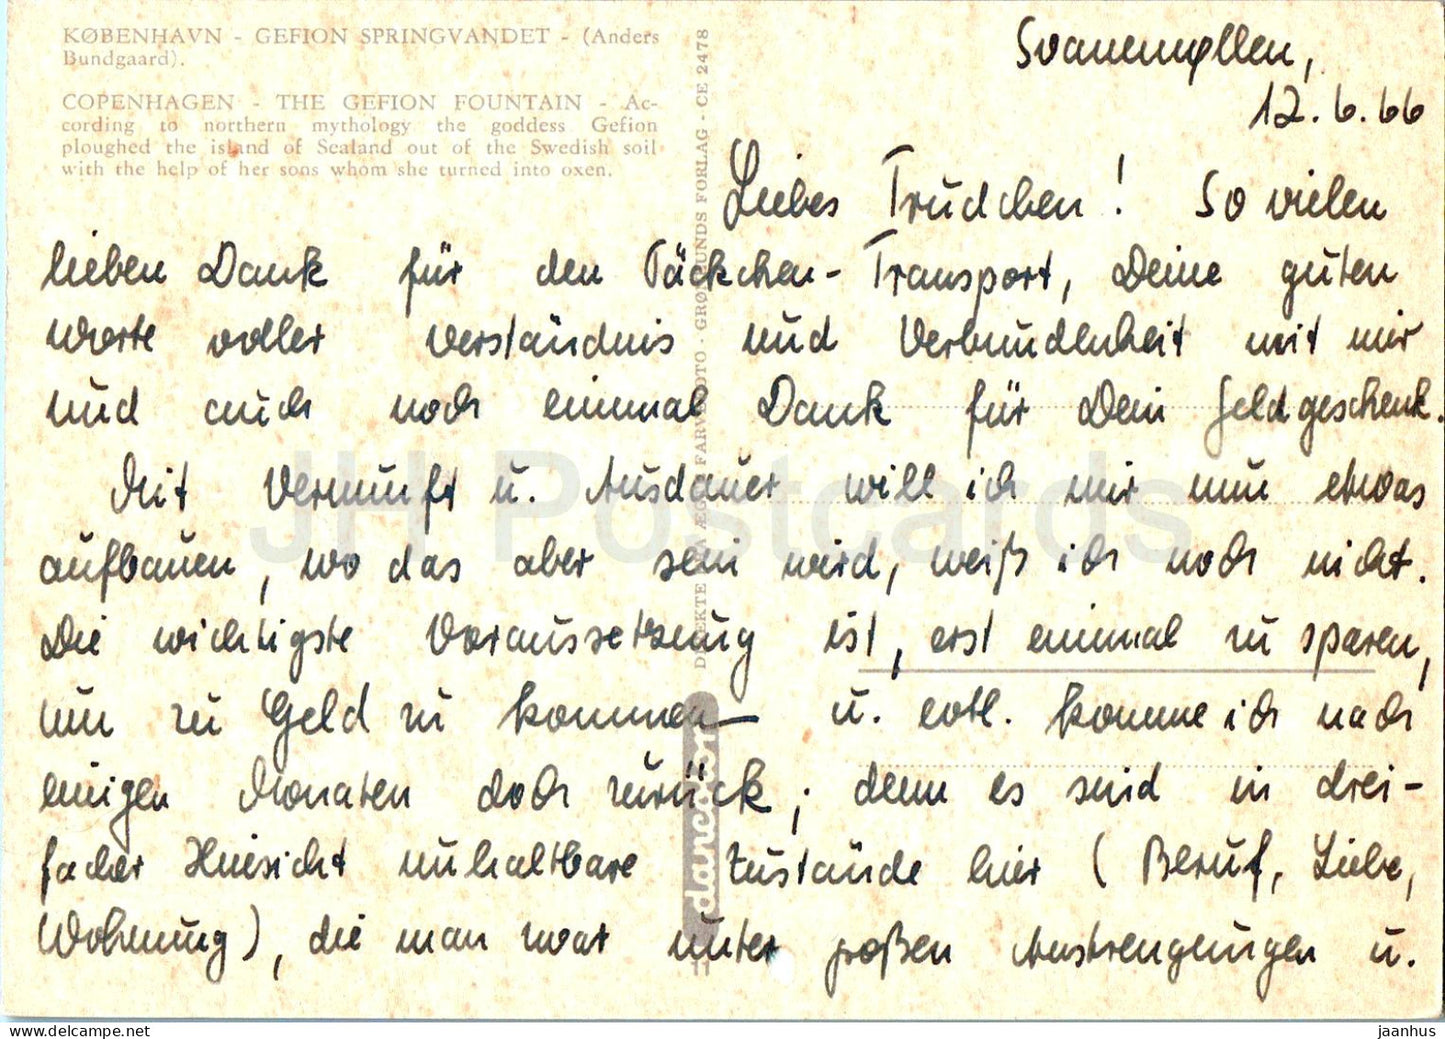 KØBENHAVN - GEFION SPRINGVANDET - (Anders
Bundgaard).
COPENHAGEN - THE GEFION FOUNTAIN - Ac-
cording to northern mythology the goddess Gefion
ploughed the island of Sealand out of the Swedish soil
with the help of her sons whom she turned into oxen.
Svanemøllen,
12.6.66
Liebes Trudchen! So vielen
lieben Dank für den Päckchen-Transport, Deine guten
Worte voller Verständnis und Verbundenheit mit mir
und auch noch einmal Dank für Dein Geldgeschenk.
Mit Vernunft u. Ausdauer will ich mir nun etwas
aufbauen, wo das aber sein wird, weiß ich noch nicht.
Die wichtigste Voraussetzung ist, erst einmal zu sparen,
um zu Geld zu kommen u. evtl. komme ich nach
einigen Monaten doch zurück; denn es sind in drei-
facher Hinsicht unhaltbare Zustände hier (Beruf, Liebe,
Wohnung), die man zwar unter großen Anstrengungen u.
DIREKTE FARVEFOTO · GRØNLUNDS FORLAG · CE 2478
dancolor
JH Postcards
www.delcampe.net
jaanhus